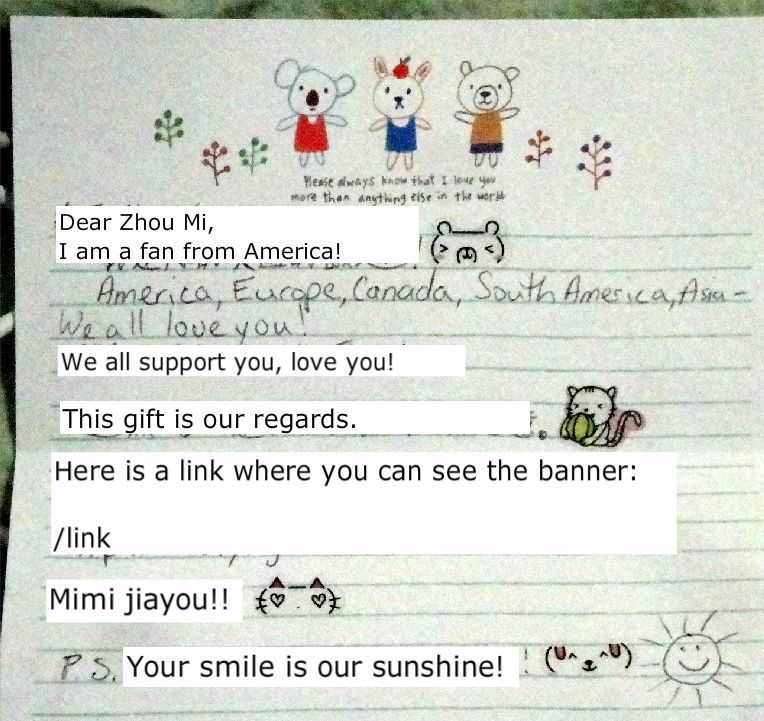 Please always know that I love you
more than anything else in the world
Dear Zhou Mi,
I am a fan from America!
America, Europe, Canada, South America, Asia -
We all love you!
We all support you, love you!
This gift is our regards.
Here is a link where you can see the banner:
/link
Mimi jiayou!!
P.S. Your smile is our sunshine!